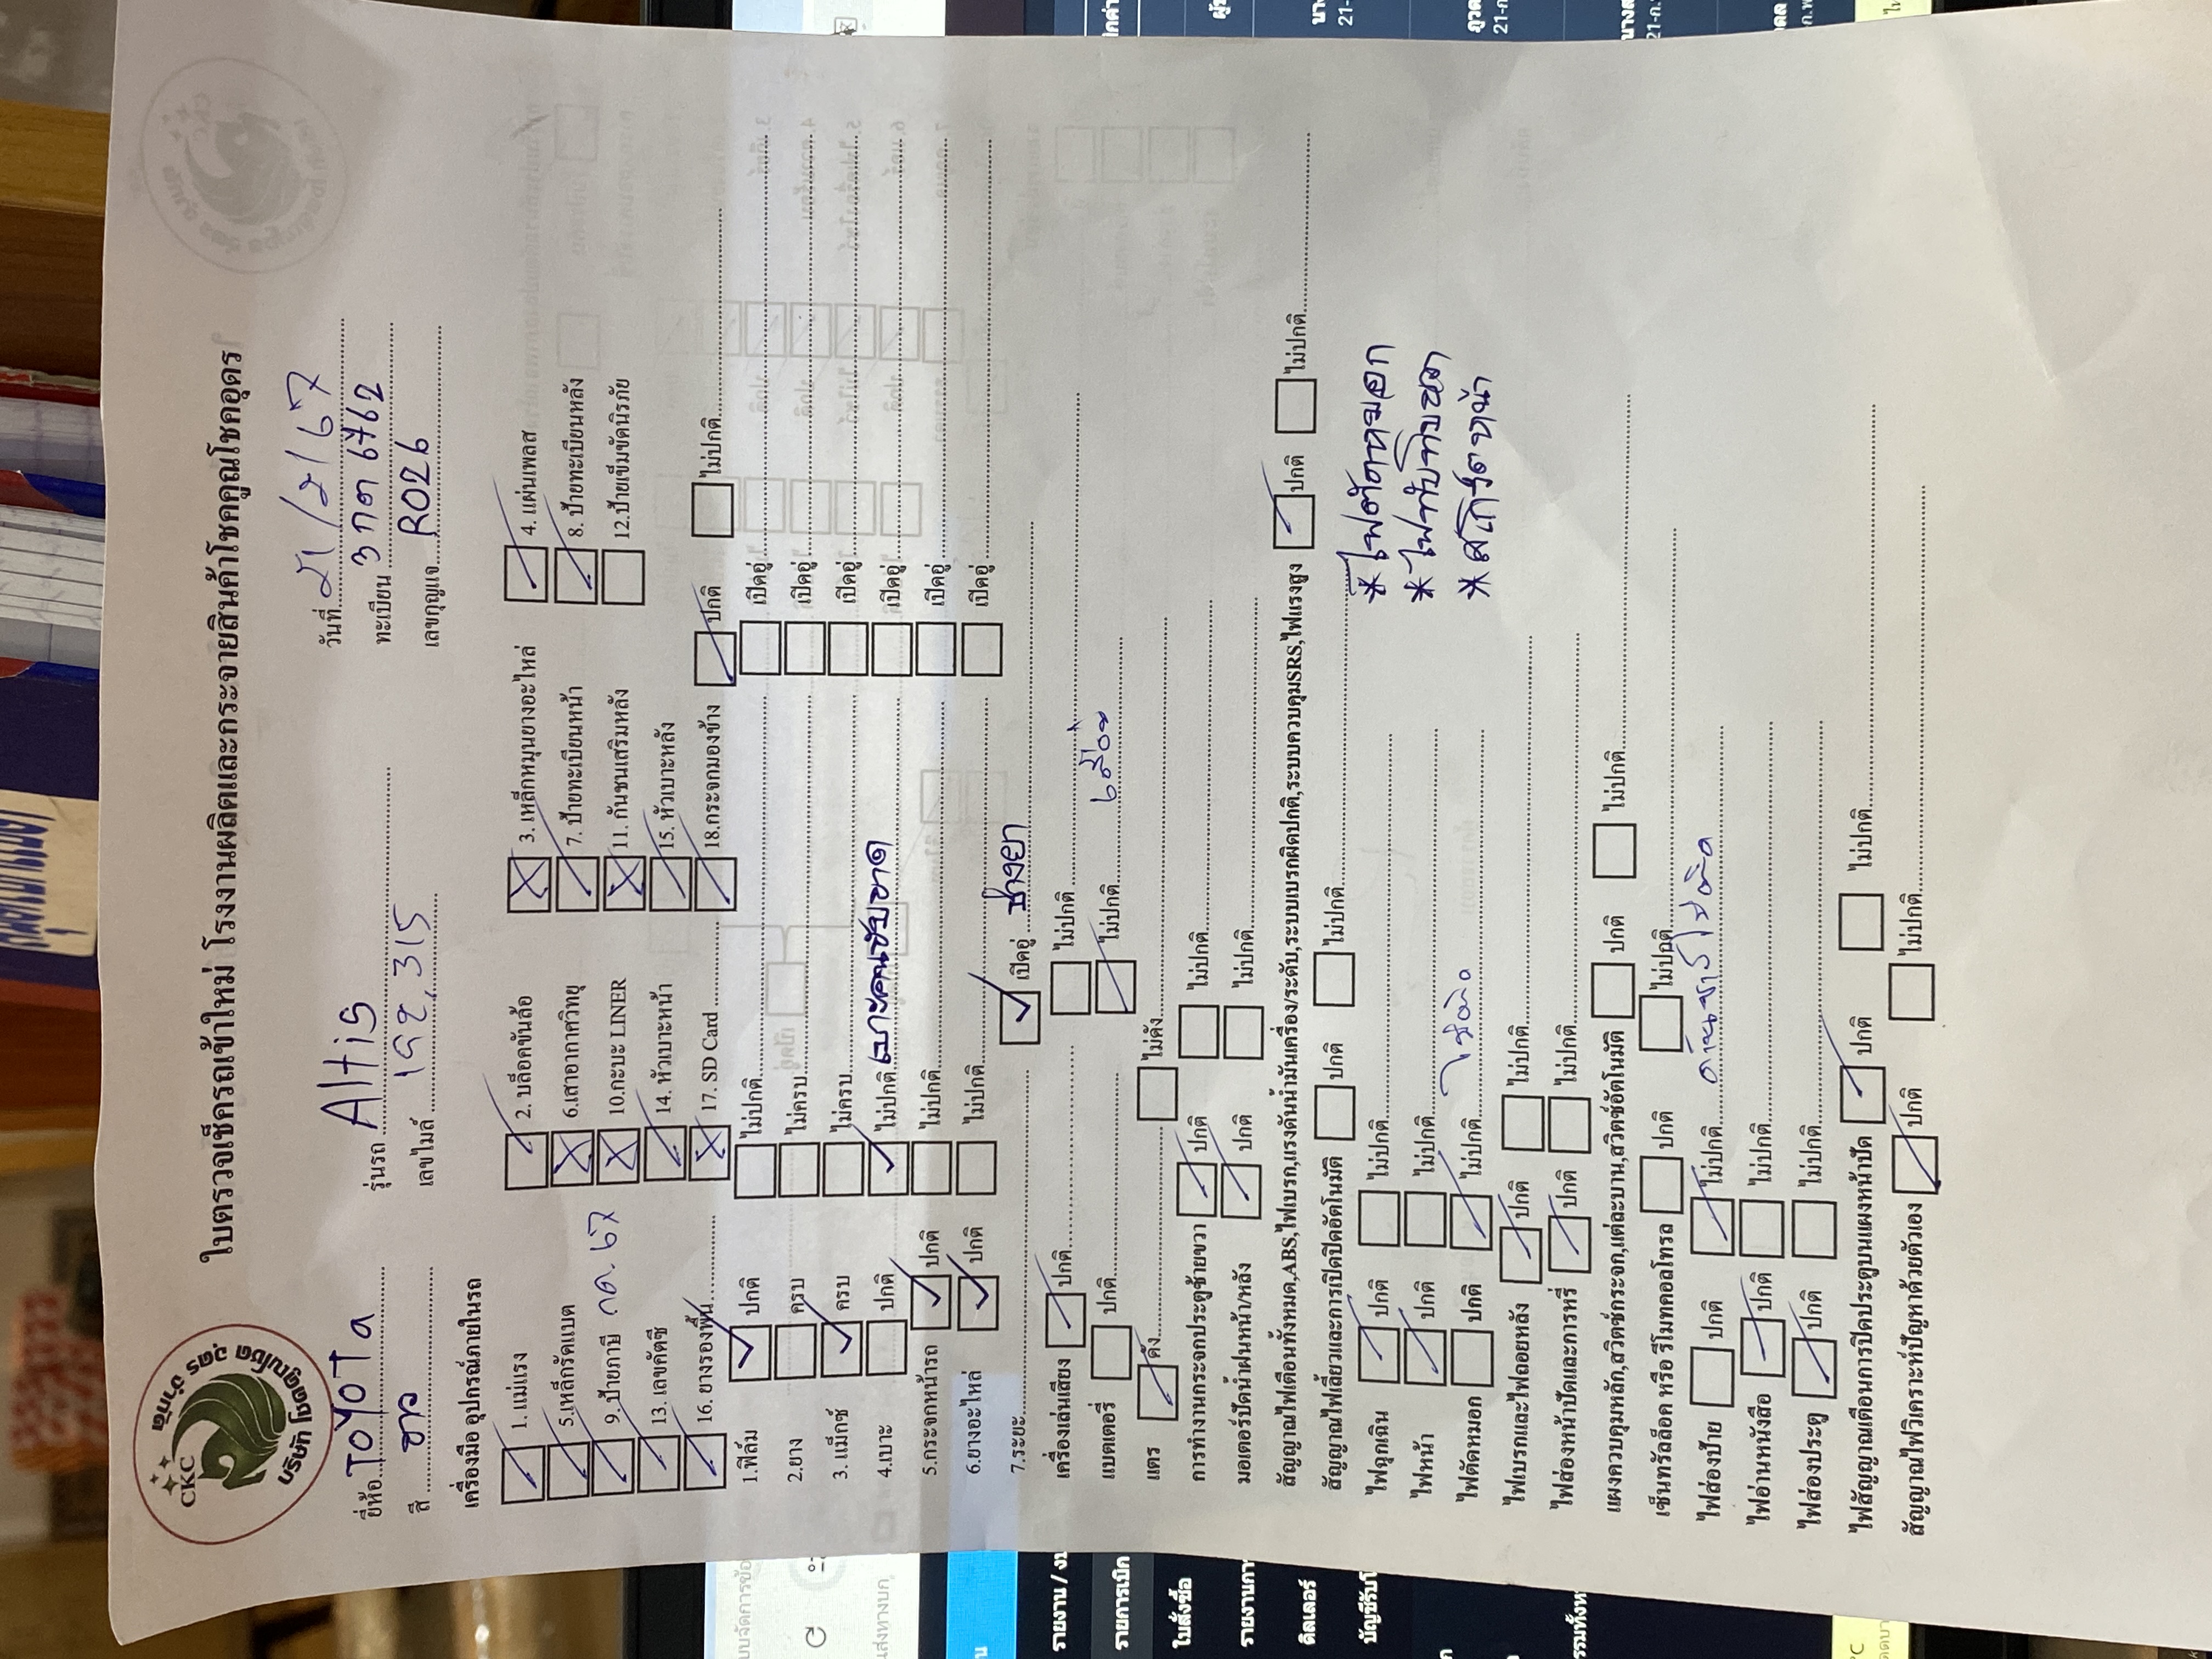 ใบตรวจเช็ครถเข้าใหม่ โรงงานผลิตและกระจายสินค้าโชคคูณโชคอุดร
CKC
บริษัท โชคคูณโชค อุดร จำกัด
วันที่ 21/2/67
ยี่ห้อ TOYOTa รุ่นรถ Altis ทะเบียน 3กต 6762
สี ขาว เลขไมล์ 192,315 เลขกุญแจ R026
เครื่องมือ อุปกรณ์ภายในรถ
1. แม่แรง 2. บล็อคขันล้อ 3. เหล็กหมุนยางอะไหล่ 4. แผ่นเพลส
5.เหล็กรัดแบต 6.เสาอากาศวิทยุ 7. ป้ายทะเบียนหน้า 8. ป้ายทะเบียนหลัง
9.ป้ายภาษี กค. 67 10.กะบะ LINER 11. กันชนเสริมหลัง 12.ป้ายเข็มขัดนิรภัย
13. เลขคัตซี 14. หัวเบาะหน้า 15. หัวเบาะหลัง
16. ยางรองพื้น 17. SD Card 18.กระจกมองข้าง ปกติ ไม่ปกติ
1.ฟิล์ม ปกติ ไม่ปกติ เปิดอู่
2.ยาง ครบ ไม่ครบ เปิดอู่
3. แม็กซ์ ครบ ไม่ครบ เปิดอู่
4.เบาะ ปกติ ไม่ปกติ เบาะคนขับขาด เปิดอู่
5.กระจกหน้ารถ ปกติ ไม่ปกติ เปิดอู่
6.ยางอะไหล่ ปกติ ไม่ปกติ เปิดอู่
7.ระยะ เปิดอู่ ช่างยา
เครื่องเล่นเสียง ปกติ ไม่ปกติ
แบตเตอรี่ ปกติ ไม่ปกติ เสื่อม
แตร ดัง ไม่ดัง
การทำงานกระจกประตูซ้ายขวา ปกติ ไม่ปกติ
มอเตอร์ปัดน้ำฝนหน้า/หลัง ปกติ ไม่ปกติ
สัญญาณไฟเตือนทั้งหมด,ABS,ไฟเบรก,แรงดันน้ำมันเครื่อง/ระดับ,ระบบเบรกผิดปกติ,ระบบควบคุมSRS,ไฟแรงสูง ปกติ ไม่ปกติ
สัญญาณไฟเลี้ยวและการเปิดปิดอัตโนมัติ ปกติ ไม่ปกติ
ไฟฉุกเฉิน ปกติ ไม่ปกติ *ไฟตัดหมอก
ไฟหน้า ปกติ ไม่ปกติ *ไฟทับทิมขวา
ไฟตัดหมอก ปกติ ไม่ปกติ ไม่ติด *สเกิร์ตหน้า
ไฟเบรกและไฟถอยหลัง ปกติ ไม่ปกติ
ไฟส่องหน้าปัดและการหรี่ ปกติ ไม่ปกติ
แผงควบคุมหลัก,สวิตซ์กระจก,แต่ละบาน,สวิตซ์อัตโนมัติ ปกติ ไม่ปกติ
เซ็นทรัลล็อค หรือ รีโมทคอลโทรล ปกติ ไม่ปกติ
ไฟส่องป้าย ปกติ ไม่ปกติ ด้านขวาไม่ติด
ไฟอ่านหนังสือ ปกติ ไม่ปกติ
ไฟส่องประตู ปกติ ไม่ปกติ
ไฟสัญญาณเตือนการปิดประตูบนแผงหน้าปัด ปกติ ไม่ปกติ
สัญญาณไฟวิเคราะห์ปัญหาด้วยตัวเอง ปกติ ไม่ปกติ
รายการเบิก
ใบสั่งซื้อ
ดีลเลอร์